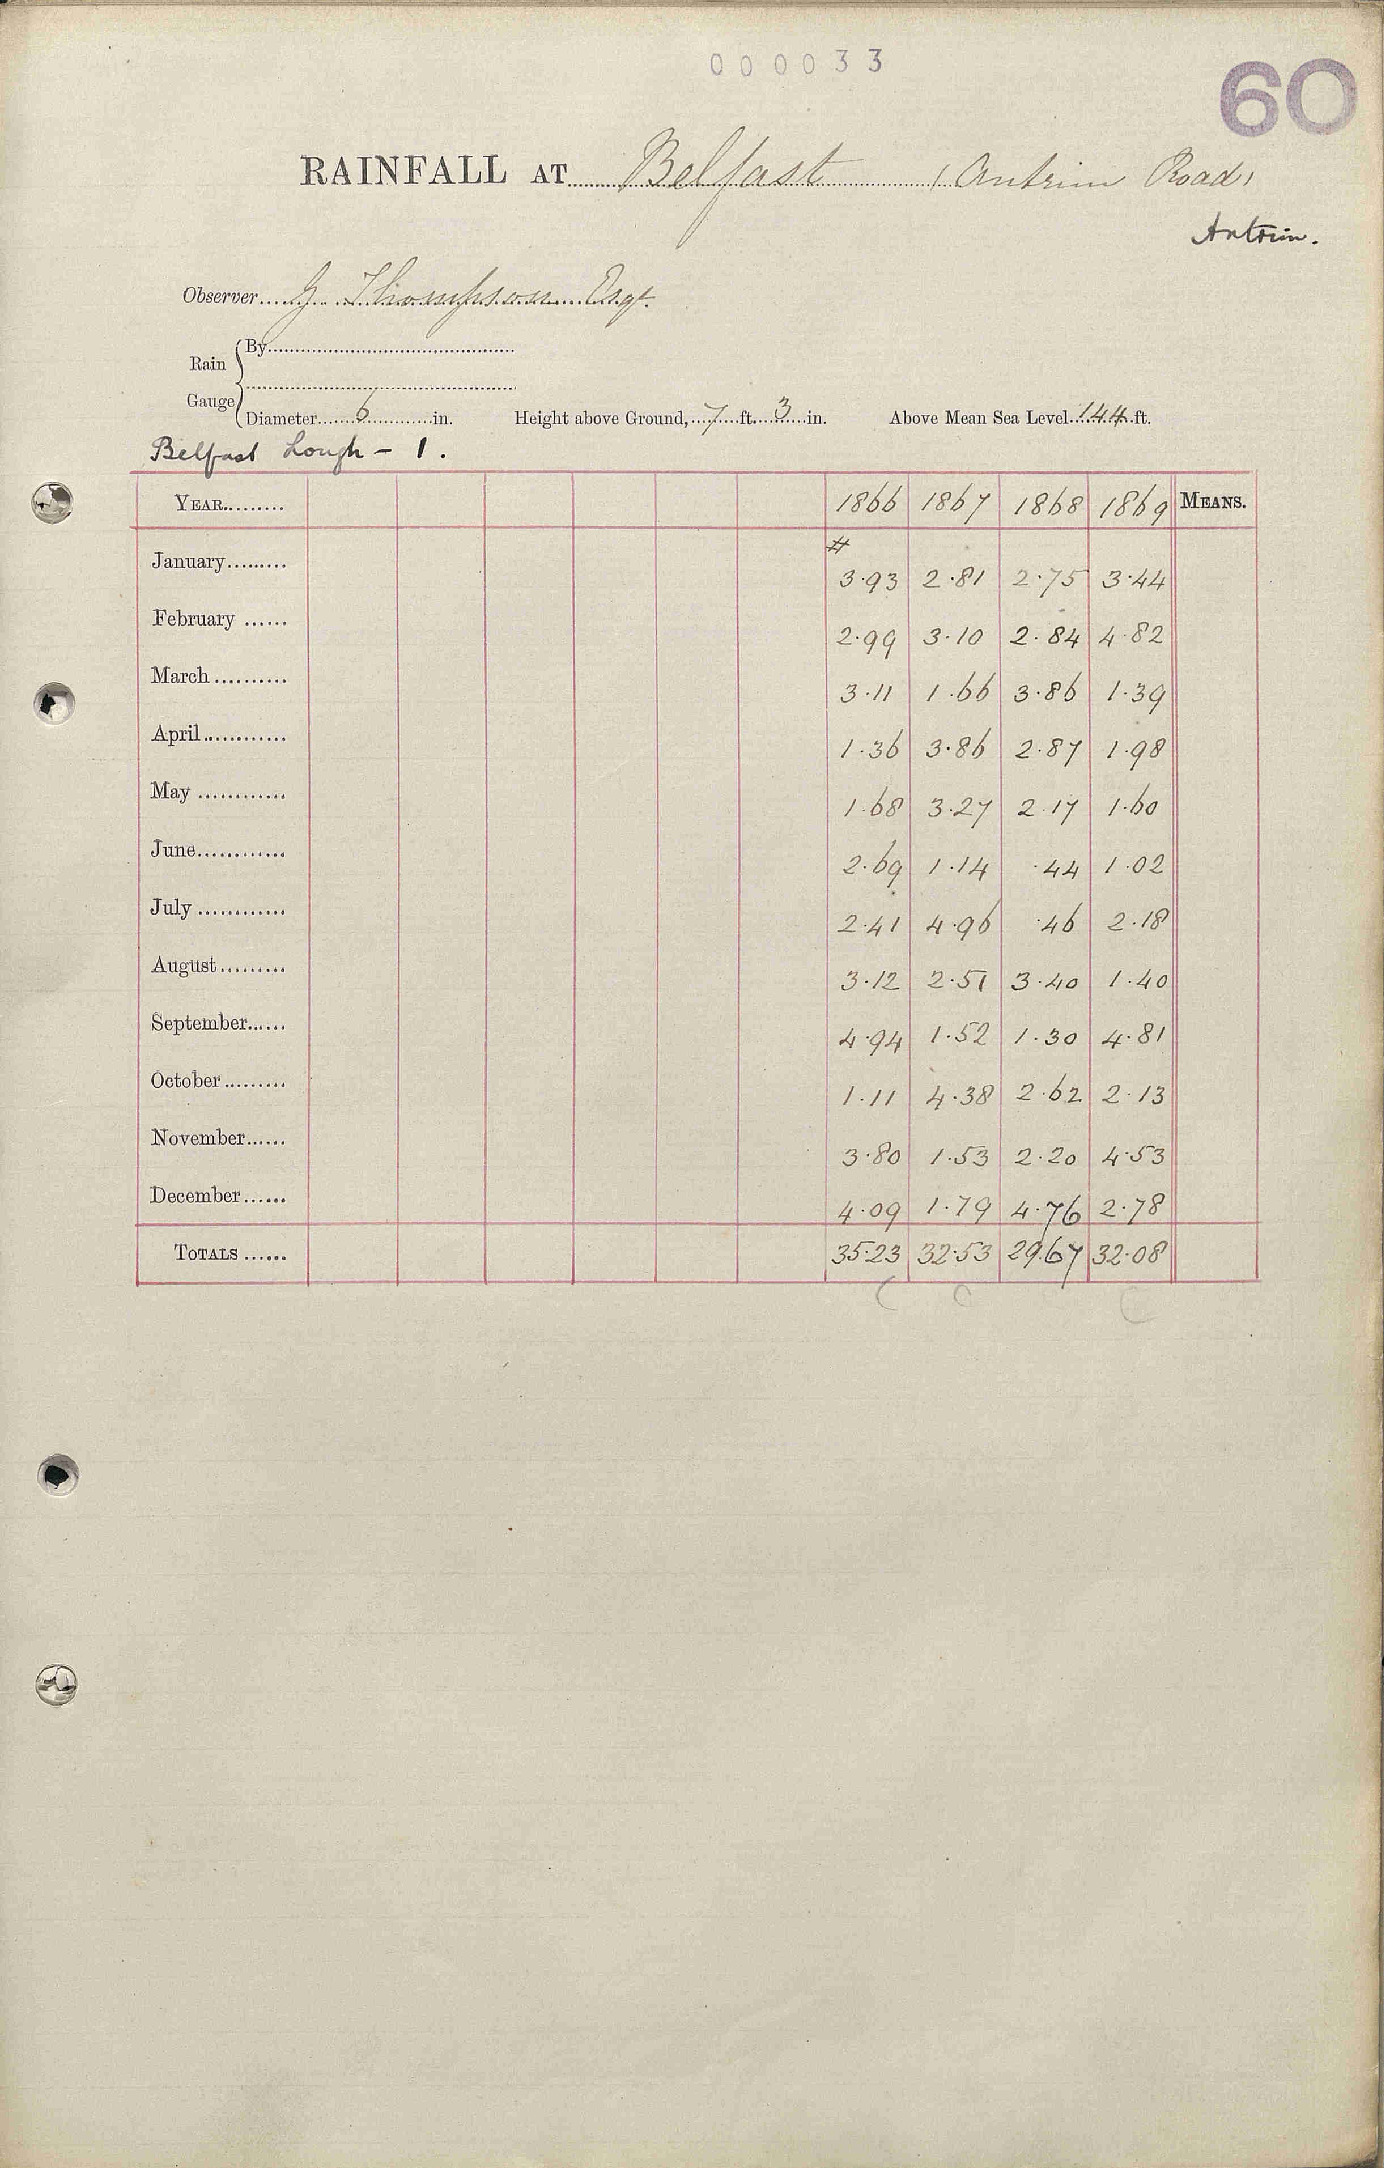 000033
60
RAINFALL AT Belfast (Antrim Road)
Antrim.
Observer G Thompson Esqr.
Rain Gauge { By
Diameter 6 in. Height above Ground, 7 ft. 3 in. Above Mean Sea Level 144 ft.
Belfast Lough - 1.
YEAR 1866 1867 1868 1869 MEANS.
#
January 3.93 2.81 2.75 3.44
February 2.99 3.10 2.84 4.82
March 3.11 1.66 3.86 1.39
April 1.36 3.86 2.87 1.98
May 1.68 3.27 2.17 1.60
June 2.69 1.14 .44 1.02
July 2.41 4.96 .46 2.18
August 3.12 2.51 3.40 1.40
September 4.94 1.52 1.30 4.81
October 1.11 4.38 2.62 2.13
November 3.80 1.53 2.20 4.53
December 4.09 1.79 4.76 2.78
TOTALS 35.23 32.53 29.67 32.08